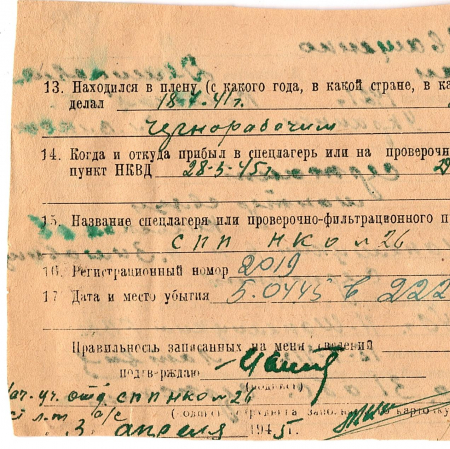 13. Находился в плену (с какого года, в какой стране, в ка
делал 18-7-41г.
Чернорабочим
14. Когда и откуда прибыл в спецлагерь или на проверочн
пункт НКВД 28-3-45г.
15. Название спецлагеря или проверочно-фильтрационного п
СПП НКО №26
16. Регистрационный номер 2019
17 Дата и место убытия 5.04.45 в 222
Правильность записанных на меня сведений
подтверждаю
(подпись)
Нач. уч. отд СПП НКО №26
ст л-т а/с
3 апреля 1945.